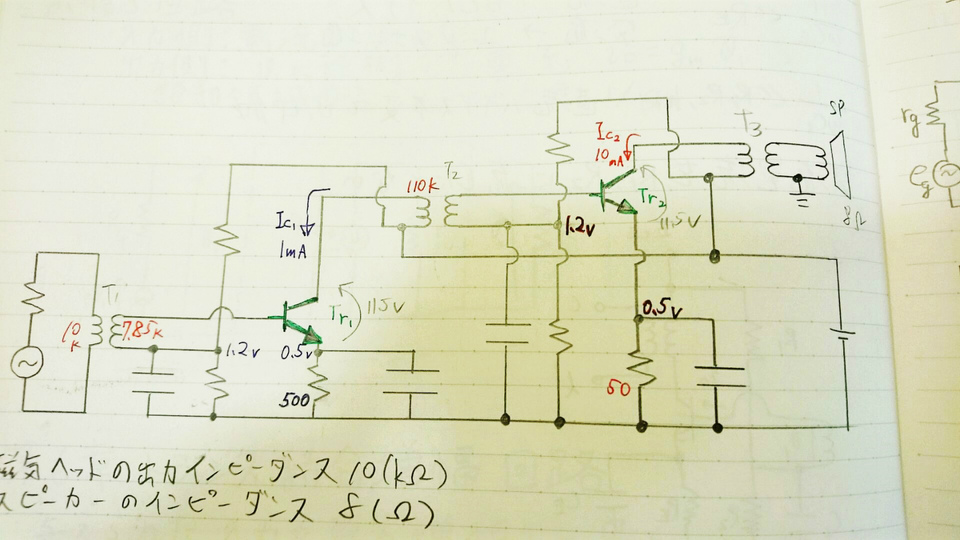 SP
rg
Ic2
T3
10mA
T2
110k
Tr2
eg
Ic1
11.5v
8Ω
1.2v
1mA
T1
Tr1
11.5v
0.5v
10k
7.85k
1.2v
0.5v
500
50
磁気ヘッドの出力インピーダンス 10(kΩ)
スピーカーのインピーダンス 8(Ω)